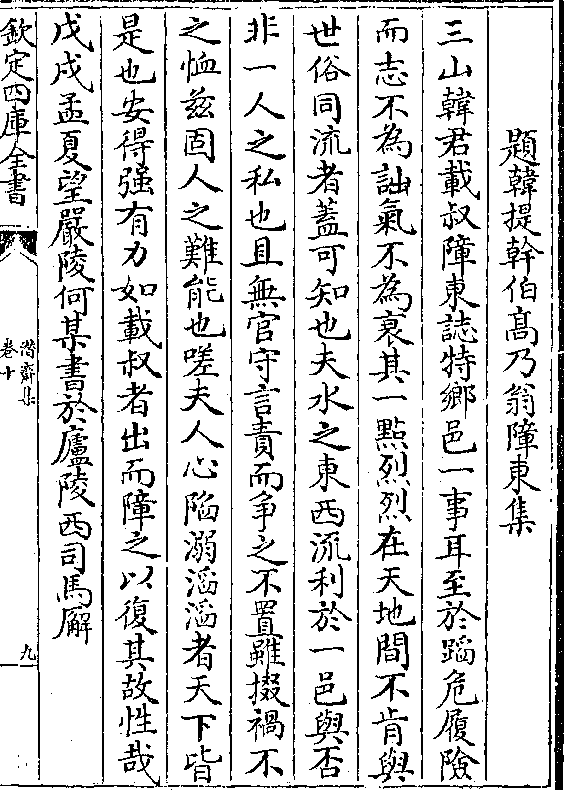 題韓提幹伯髙乃翁障東集
三山韓君載叔障東誌特鄉邑一事耳至於蹈危履險
而志不為詘氣不為衰其一㸃烈烈在天地間不肯與
世俗同流者蓋可知也夫水之東西流利於一邑與否
非一人之私也且無官守言責而争之不置雖掇禍不
之恤兹固人之難能也嗟夫人心陷溺滔滔者天下皆
是也安得強有力如載叔者出而障之以復其故性哉
戊戌孟夏望嚴陵何某書於廬陵西司馬廨
欽定四庫全書
潛齋集
卷十
九